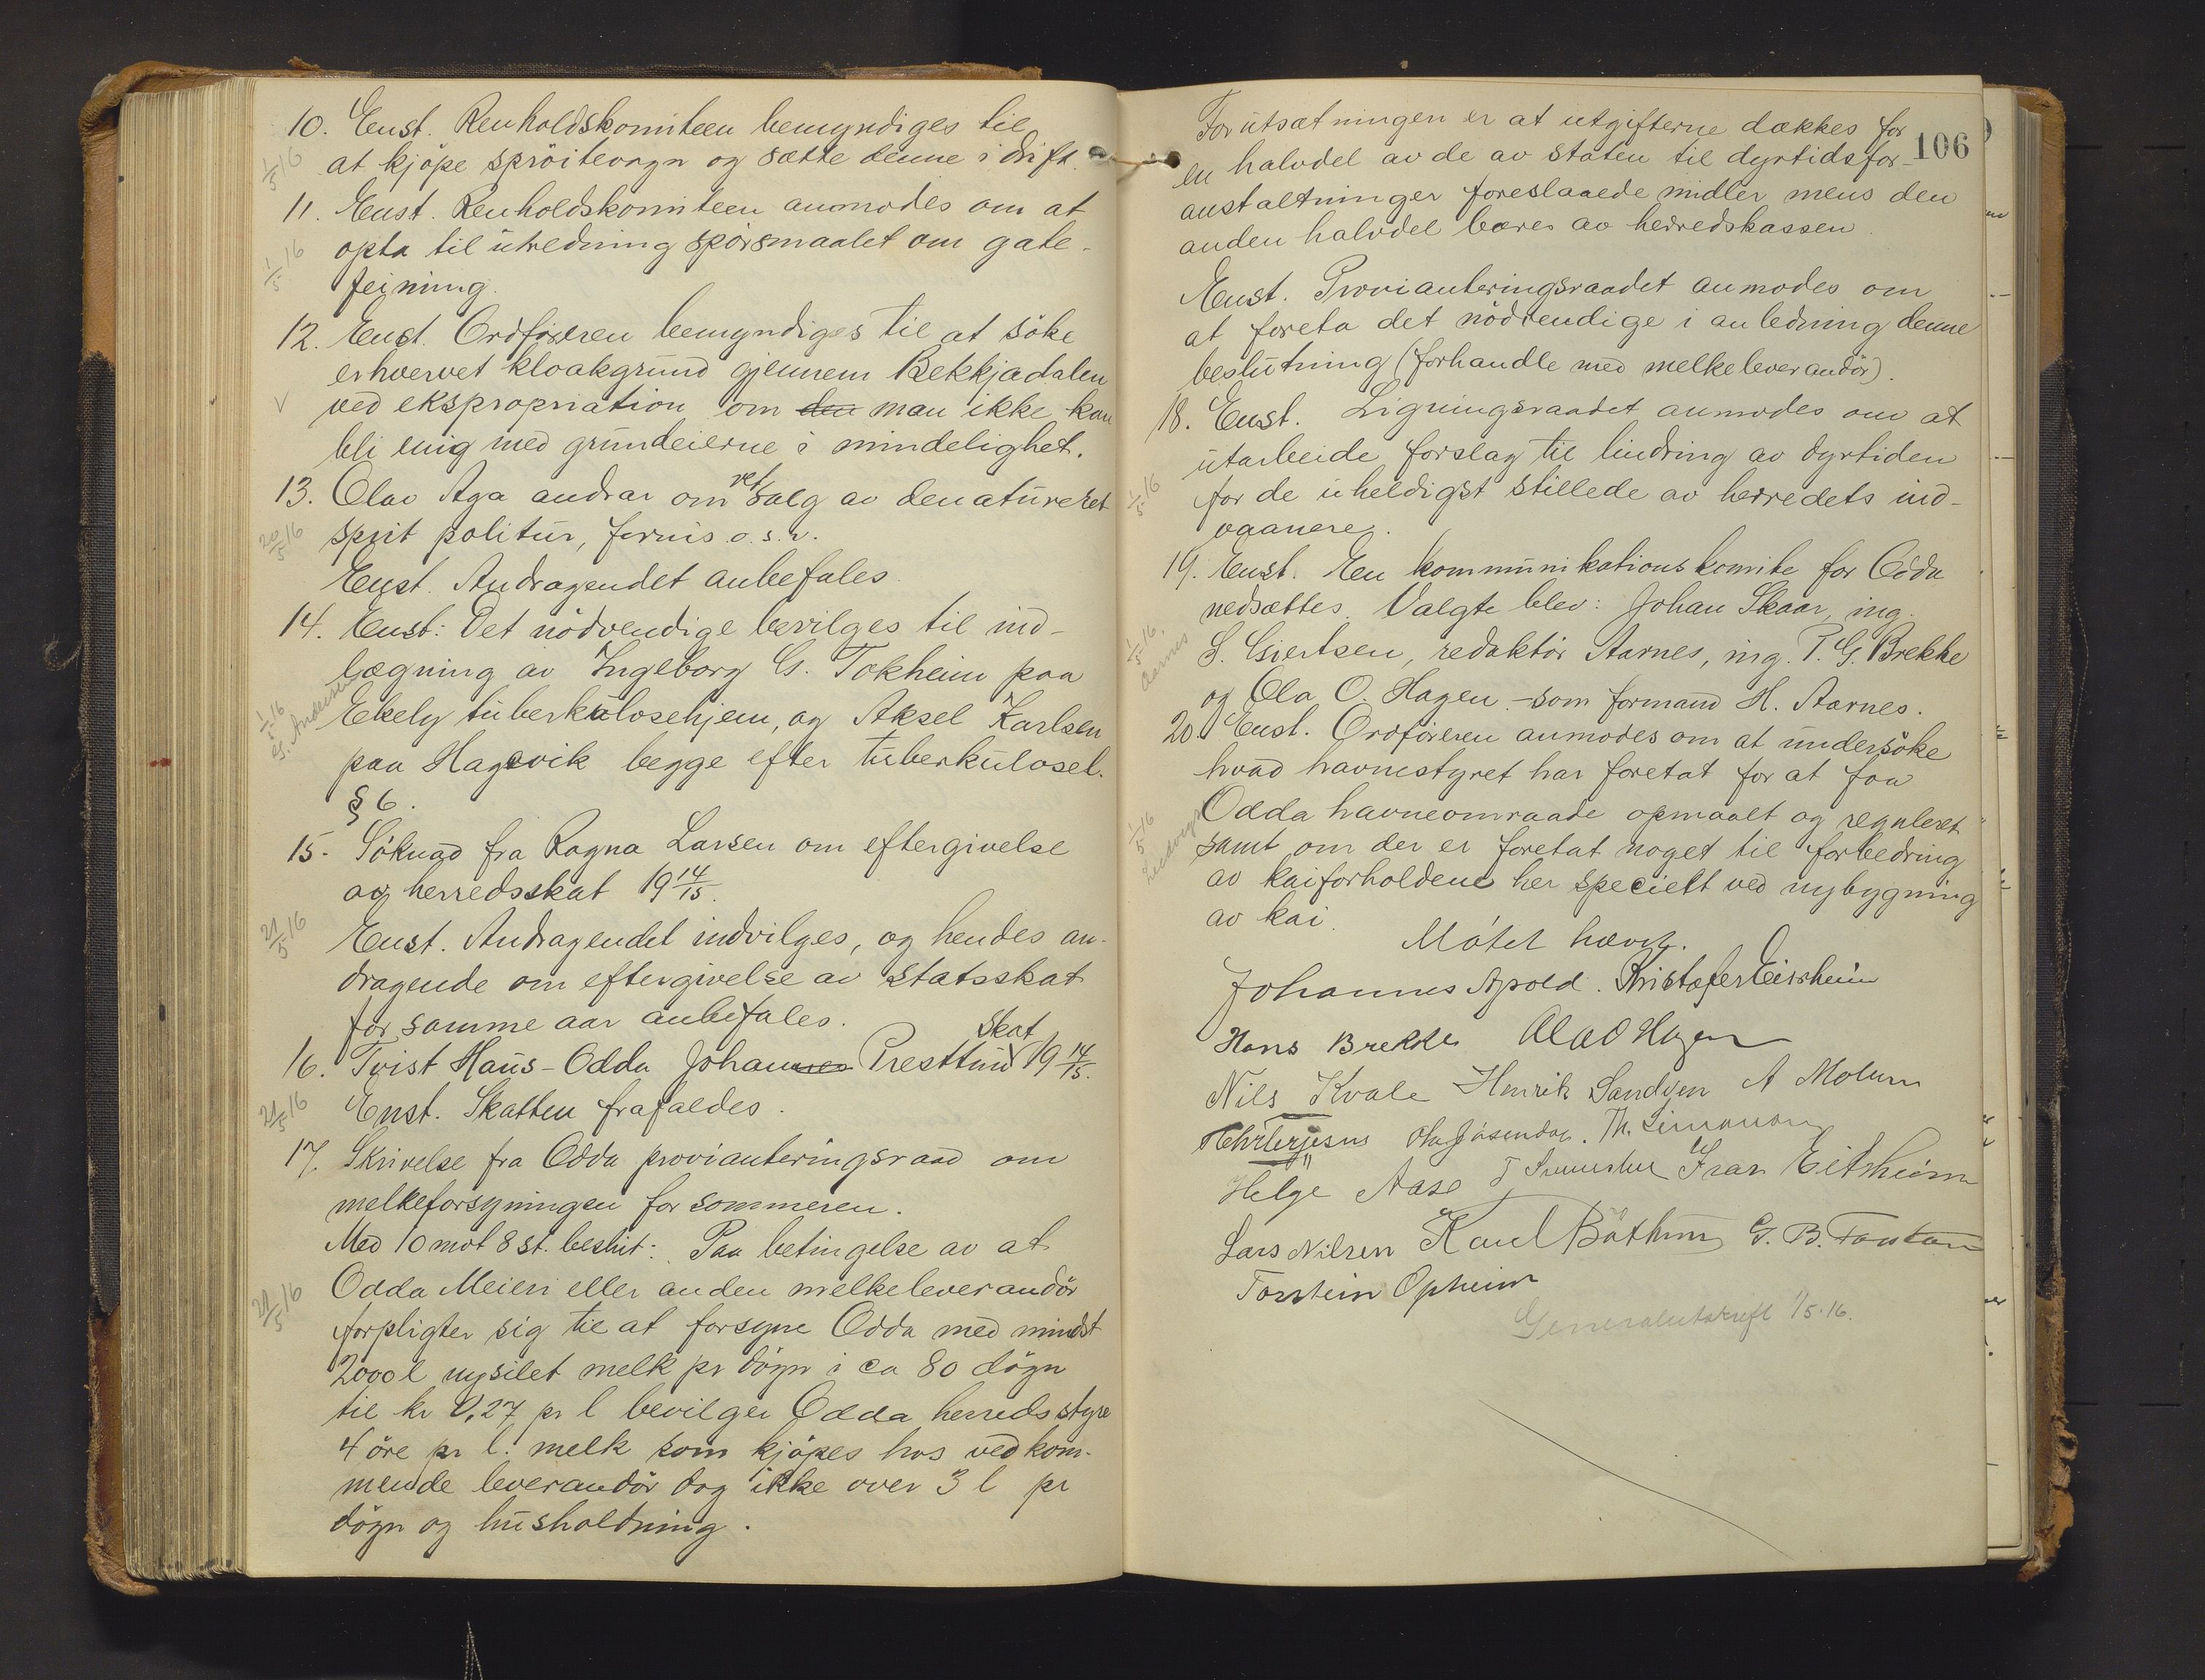 10. Enst. Renholdskomiteen bemyndiges til
1/5 16
at kjöpe spröitevogn og sætte denne i drift.
11. Enst. Renholdskomiteen anmodes om at
opta til utredning spörsmaalet om gate-
1/5 16
feining.
12. Enst. Ordföreren bemyndiges til at söke
erhvervet kloakgrund gjennem Bekkjadalen
ved ekspropriation om den man ikke kan
bli enig med grundeierne i mindelighet.
13. Olav Aga andrar om ret salg av denatureret
20/5 16
sprit politur, fernis o.s.v.
Enst. Andragendet anbefales.
14. Enst: Det nödvendige bevilges til ind-
lægning av Ingeborg G. Tokheim paa
1/5 16
G. Andersen
Ekely tuberkulosehjem, og Aksel Karlsen
paa Hagavik begge efter tuberkulosel.
§ 6.
15. Söknad fra Ragna Larsen om eftergivelse
av herredsskat 19 14/15.
21/5 16
Enst. Andragendet indvilges, og hendes an-
dragende om eftergivelse av statsskat
for samme aar anbefales.
16. Tvist Haus - Odda Johannes Presttun skat 19 14/15.
21/5 16
Enst. Skatten frafaldes.
17. Skrivelse fra Odda provianteringsraad om
melkeforsyningen for sommeren.
Med 10 mot 8 st. beslut: Paa betingelse av at
21/5 16
Odda Meieri eller anden melkeleverandör
forpligter sig til at forsyne Odda med mindst
2000 l nysilet melk pr dögn i ca 80 dögn
til kr 0,27 pr l bevilger Odda herredsstyre
4 öre pr l. melk som kjöpes hos vedkom-
mende leverandör dog ikke over 3 l pr
dögn og husholdning.
106
Forutsætningen er at utgifterne dækkes for
en halvdel av de av staten til dyrtidsfor-
anstaltninger foreslaaede midler mens den
anden halvdel bæres av herredskassen.
Enst. Provianteringsraadet anmodes om
at foreta det nödvendige i anledning denne
beslutning (forhandle med melkeleverandör).
18. Enst. Ligningsraadet anmodes om at
utarbeide forslag til lindring av dyrtiden
1/5 16
for de uheldigst stillede av herredets ind-
vaanere.
19. Enst. En kommunikationskomite for Odda
nedsættes. Valgte blev: Johan Skaar, ing.
1/5 16.
Aarnes
S. Giertsen, redaktör Aarnes, ing. P. G. Brekke
og Ola O. Hagen - som formand H. Aarnes.
20. Enst. Ordföreren anmodes om at undersöke
hvad havnestyret har foretat for at faa
1/5 16
Odda havneomraade opmaalt og reguleret
samt om der er foretat noget til forbedring
av kaiforholdene her specielt ved nybygning
av kai.
Mötet hævet.
Johannes Apold. Kristofer Eitrheim
Hans Brekke Ola O Hagen
Nils Kvale Henrik Sandven A Molum
Th. Simonson
Helge Aase Ivar Eitrheim
Lars Nilsen Karl Böthun G. B. Tokheim
Torstein Opheim
Generalutskrift 1/5.16.